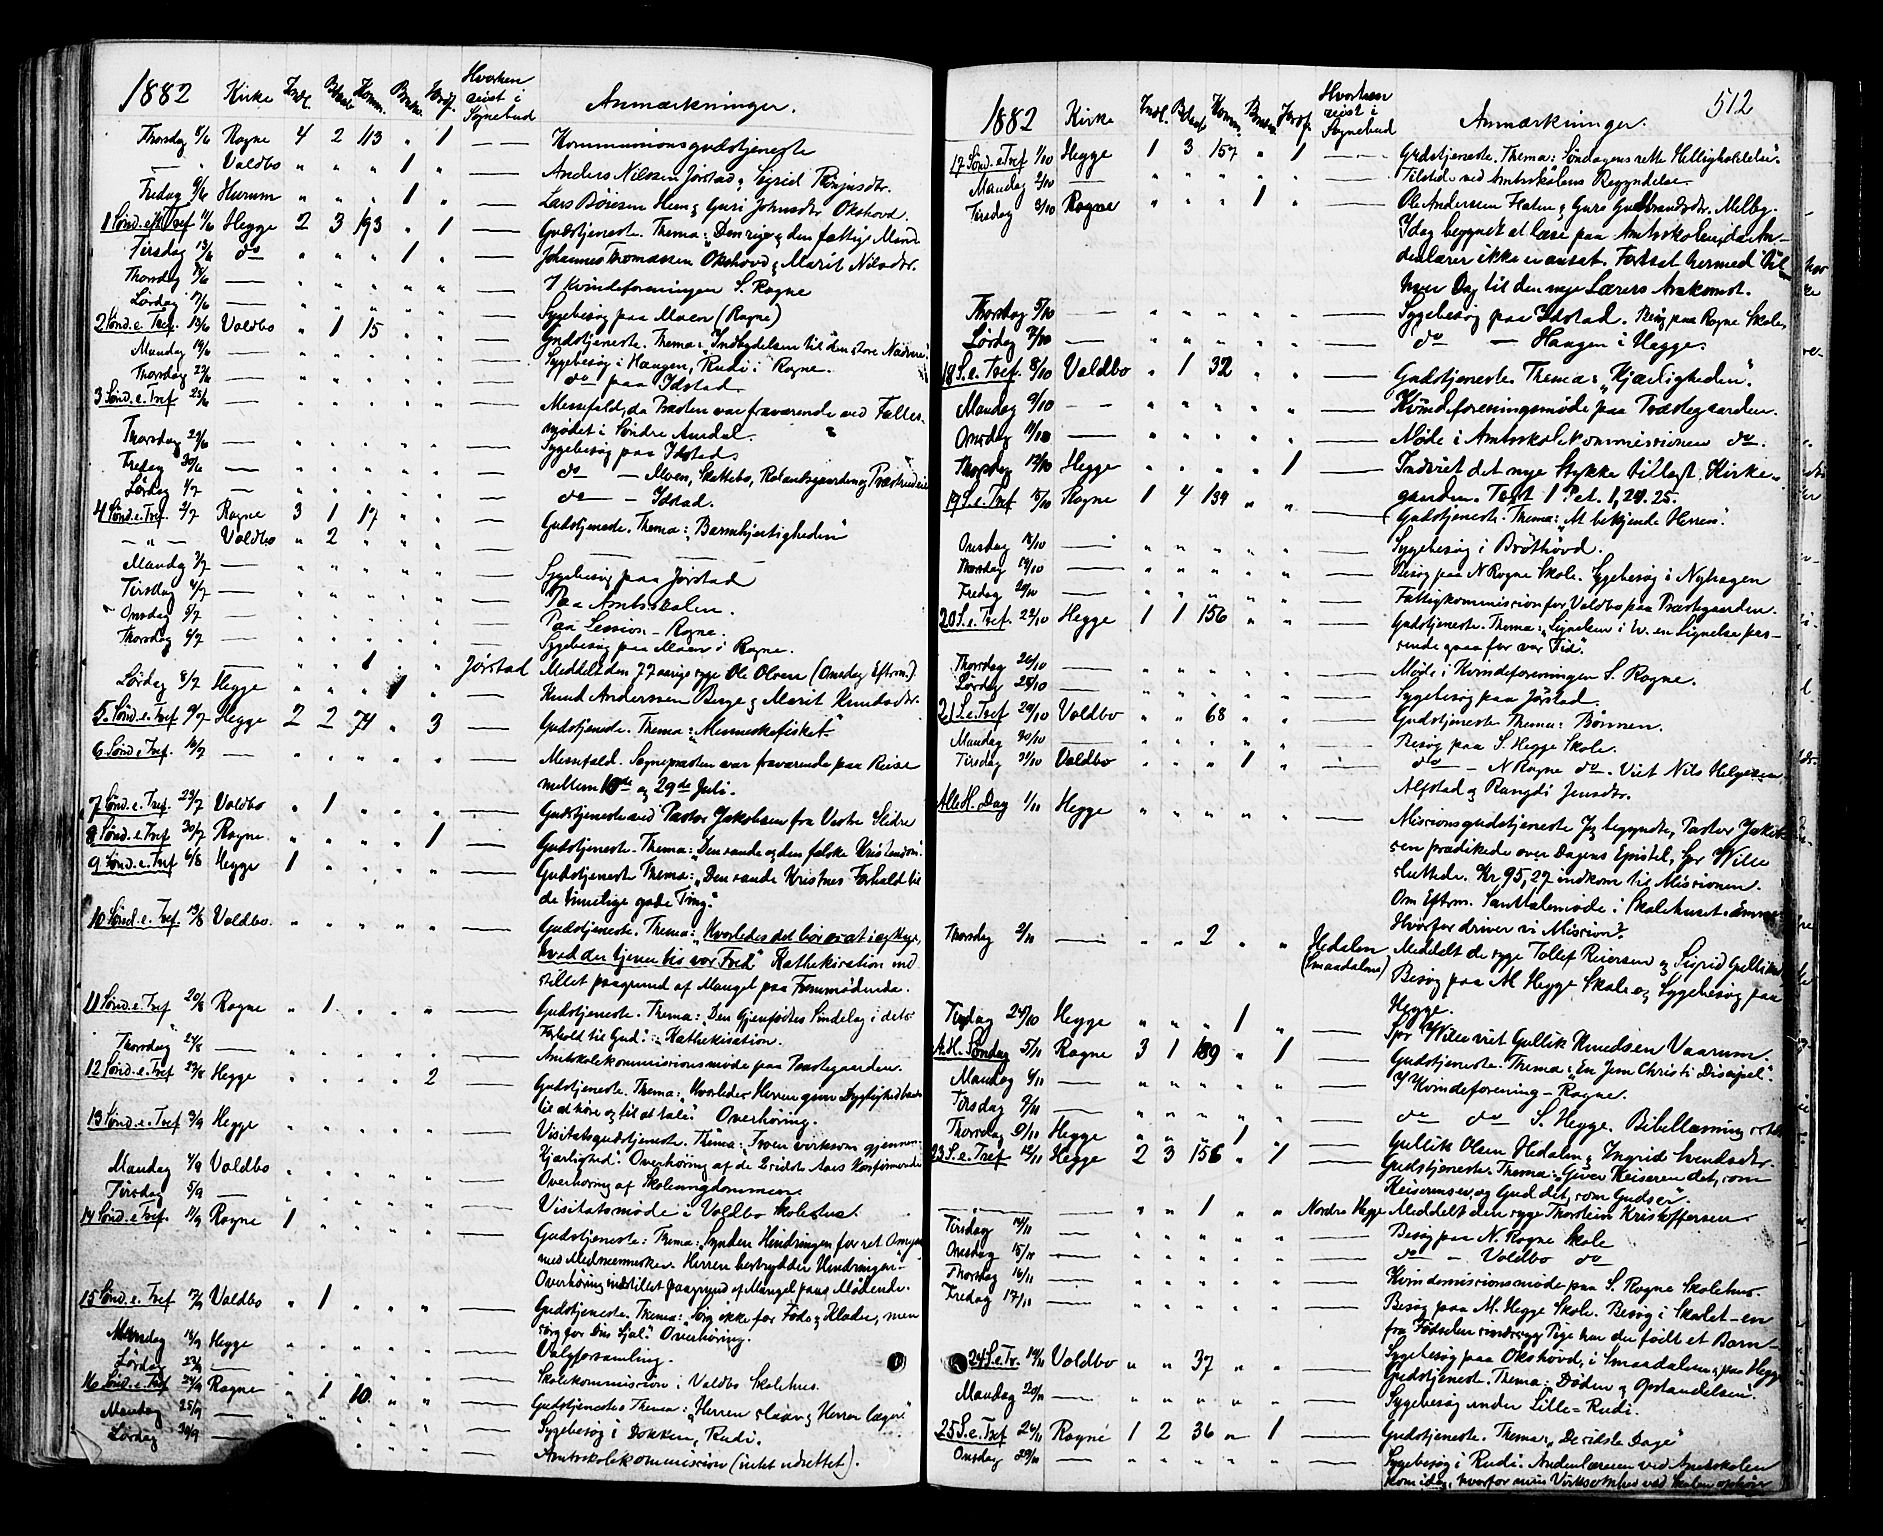 1882 Kirke Indl. Komm. Hvorhen reist i Sognebud Anmærkninger.
Thorsdag 8/6 Rogne 4 2 113 " 1 — Kommunionsgudstjeneste
— " Valdbo " " " 1 " — Anders Nilssen Jørstad & Sigrid
Fredag 9/6 Hurum " " " 1 " — Lars Guri Johnsdtr Okshovd.
1 Sønd. e. Tref 11/6 Hegge 2 3 193 " 1 — Gudstjeneste. Thema: „Den rige & den fattige Mand
Tirsdag 13/6 do " " " 1 " — Johannes Thomassen Okshovd & Marit Nilsdtr.
Thorsdag — " " " " " — I Kvindeforeningen S. Rogne
Lørdag 17/6 — " " " " " — Sygebesøg paa Moen (Rogne)
2 Sønd. e. Tref. Valdbo " 1 15 " " — Gudstjeneste. Thema: „Indbydelsen til den store Nadvere"
Mandag 19/6 — " " " " " — Sygebesøg i Haugen, Rudi i Rogne.
Thorsdag 22/6 — " " " " " — do paa Idstad
3 Sønd. e. Tref 25/6 — " " " " " — Messefald, da Præsten var fraværende ved Fælles-
mødet i Søndre Aurdal.
Thorsdag 29/6 — " " " " " — Sygebesøg paa Idstad
Fredag 30/6 — " " " " " — do — Moen, Skattebo,
Lørdag 1/7 — " " " " " — do — Idstad.
4 Sønd. e. Tref. 2/7 Rogne 3 1 17 " " — Gudstjeneste. Thema: „Barmhjertigheden"
— " — Valdbo " 2 " " "
Mandag 3/7 — " " " " " — Sygebesøg paa Jørstad
Tirsdag 4/7 — " " " " " — Paa Amtsskolen.
Onsdag 5/7 — " " " " " — Paa Session - Rogne.
Thorsdag 6/7 — " " " " " — Sygebesøg paa Moen i Rogne.
— " " 1 " " Jørstad Meddelt den 77 aarige syge Ole Olsen (Onsdag Efterm.)
Lørdag 8/7 Hegge " " " 1 " — Knud Anderssen Berge & Marit Knudsdtr.
5. Sønd. e. Tref 9/7 Hegge 2 2 74 " 3 — Gudstjeneste. Thema: „Menneskefisket"
6 Sønd. e. Tref. 16/7 — " " " " " — Messefald. Sognepræsten var fraværende paa Reise
mellem 10de og 29de Juli.
7 Sønd. e. Tref. 23/7 Valdbo " 1 " " " — Gudstjeneste ved Pastor Jakobsen fra Vestre Slidre
8 Sønd. e. Tref 30/7 Rogne. " " " " 1 — Gudstjeneste. Thema: „Den sande og den falske Kristendom".
9 Sønd. e. Tref 6/8 Hegge 1 " " " " — Gudstjeneste Thema: „Den sande Kristnes Forhold til
de timelige gode Ting."
10 Sønd. e. Tref. 13/8 Valdbo. " " " " " — Gudstjeneste. Thema: „Hvorledes det bør os at
hvad der tjener til vor Fred" Kathekisation ind
stillet paagrund af Mangel paa Fremmødende.
11 Sønd. e. Tref 20/8 Rogne " 1 " " " — Gudstjeneste. Thema: „Den Gjenfødtes Sindelag i dets
Forhold til Gud". Kathekisation.
Thorsdag 24/8 — " " " " " — Amtsskolekommissionsmøde paa Præstegaarden.
12 Sønd. e. Tref 27/8 Hegge " " " " 2 — Gudstjeneste. Thema: „Hvorledes Herren giver Dygtighed baade
til at høre og til at tale". Overhøring.
13 Sønd. e. Tref 3/9 Hegge " " " " " — Visitatsgudstjeneste. Thema: „Troen virksom gjennem
Kjærlighed". Overhøring af de 2 sidste Aars Konfirmerede
Mandag 4/9 Valdbo " " " " " — Overhøring af Skoleungdommen.
Tirsdag 5/9 — " " " " " — Visitatsmøde i Valdbo Skolehus.
14 Sønd. e. Tref. Rogne 1 " " " " — Gudstjeneste: Thema: „Synden Hindringen for ret Omgang
med Medmennesker. Herren borttrydder Hindringen -
Overhøring indstillet paagrund af Mangel paa Mødende.
15 Sønd. e. Tref 17/9 Valdbo " 1 " " " — Gudstjeneste. Thema: „Sørg ikke for Føde & Klæder, men
sørg for Din Sjæl". Overhøring.
Mandag 18/9 Hegge " " " " " — Valgforsamling.
Lørdag 23/9 — " " " " " — Skolekommission i Valdbo Skolehus.
16 Sønd. e. Tref 24/9 Rogne " 1 10 " " — Gudstjeneste Thema: „Herren slaar & Herren læger"
Mandag 25/9 — " " " " " — Sygebesøg i Dokken, Rudi.
Lørdag 30/9 — " " " " " — Amtsskolekommission (intet udrettet).
1882 Kirke Indl. Komm. Hvorhen reist i Sognebud Anmærkninger. 512
17 Sønd. e. Tref 1/10 Hegge 1 3 157 " 1 — Gudstjeneste. Thema: Søndagens rette Helligholdelse".
Mandag 2/10 — " " " " " — Tilstede ved Amtsskolens Begyndelse.
Tirsdag 3/10 Rogne " " " 1 " — Ole Anderssen Guro Gudbrandsdtr. Melby.
Idag begyndt at læse paa Amtsskolen, da An-
denlærer ikke er ansat. Fortsat hermed
hver Dag til den nye Lærers Ankomst.
Thorsdag 5/10 — " " " " " — Sygebesøg paa Idstad. Besøg paa Rogne Skole,
Lørdag 7/10 — " " " " " — do — Haugen i Hegge.
18 S. e. Tref. 8/10 Valdbo " 1 32 " " — Gudstjeneste. Thema: „Kjærligheden".
Mandag 9/10 — " " " " " — Kvindeforeningsmøde paa Præstegaarden.
Onsdag 11/10 — " " " " " — Møde i Amtsskolekommissionen do.
Thorsdag 12/10 Hegge " " " " 1 — Indviet det nye Stykke tillagt Kirke-
gaarden. Text 1 Pet. 1, 24. 25.
19 S. e. Tref 15/10 Rogne 1 4 139 " " — Gudstjeneste. Thema: „At bekjende Herren".
Onsdag 18/10 — " " " " " — Sygebesøg i Brøthovd.
Thorsdag 19/10 — " " " " " — Besøg paa N Rogne Skole. Sygebesøg i Nyhagen
Fredag 20/10 — " " " " " — Fattigkommission for Valdbo paa Præstegaarden.
20 S. e. Tref. 22/10 Hegge 1 1 156 " " — Gudstjeneste. Thema: „Lignelsen i en Lignelse pas-
sende paa for vor Tid".
Thorsdag 26/10 — " " " " " — Møde i Kvindeforeningen S. Rogne.
Lørdag 28/10 — " " " " " — Sygebesøg paa Jørstad.
21 S. e. Tref 29/10 Valdbo " " 68 " " — Gudstjeneste Thema: Bønnen.
Mandag 30/10 — " " " " " — Besøg paa S. Hegge Skole.
Tirsdag 31/10 Valdbo " " " 1 " — do — N Rogne do. Viet Nils Helgesen
Alfstad & Rangdi Jensdtr.
Alle H. Dag 1/11 Hegge " " " " " — Missionsgudstjeneste Jeg begyndte, Pastor Jakob-
sen prædikede over Dagens Epistel, Spr Wille
sluttede. Kr 95,27 indkom til Missionen.
Om Efterm. Santhalmøde i Skolehuset. Emne:
Hvorfor driver vi Mission?
Thorsdag 2/11 — " " 2 " " Hedalen (Smaadalene) Meddelt de syge Tollef Reiersen & Sigrid
Besøg paa M. Hegge Skole & Sygebesøg paa
Hegge.
Tirsdag 24/10 Hegge " " " 1 " — Spr Wille viet Gullik Knudsen Vaarum.
A. H. Søndag 5/11 Rogne 3 1 189 " 1 — Gudstjeneste. Thema: „En Jesu Christi Discipel".
Mandag 6/11 — " " " " " — I Kvindeforening - Rogne.
Tirsdag 7/11 — " " " " " — do do S. Hegge. Bibellæsning
Thorsdag 9/11 Hegge " " " 1 " — Gullik Olsen Hedalen & Ingrid Svendsdtr.
23 S. e. Tref 12/11 Hegge 2 3 156 " 1 — Gudstjeneste. Thema: „Giver Keiseren det, som
Keiserens er, og Gud det, som Guds er".
— " " 1 " " Nordre Hegge Meddelt den syge Thorstein Kristoffersen
Tirsdag 14/11 — " " " " " — Besøg paa N. Rogne Skole
Onsdag 15/11 — " " " " " — do — Valdbo do
Thorsdag 16/11 — " " " " " — Kvindemissionsmøde paa S. Rogne Skolehus.
Fredag 17/11 — " " " " " — Besøg paa M. Hegge Skole. Besøg i Skolet - en
fra Fødselen sindssyg Pige har der født et Barn -
Sygebesøg paa Okshovd, i Smaadalene, paa Hegge
24 S. e. Tr. 19/11 Valdbo " " 37 " " — Gudstjeneste. Thema: Døden & Opstandelsen.
Mandag 20/11 — " " " " " — Sygebesøg under Lille-Rudi.
25 S. e. Tref 26/11 Rogne 1 2 36 " 1 — Gudstjeneste. Thema: „De sidste Dage"
Onsdag 29/11 — " " " " " — Sygebesøg i Rudi. Andenlæreren ved Amtsskolen
kom idag, hvorfor min Virksomhed ved Skolen ophør